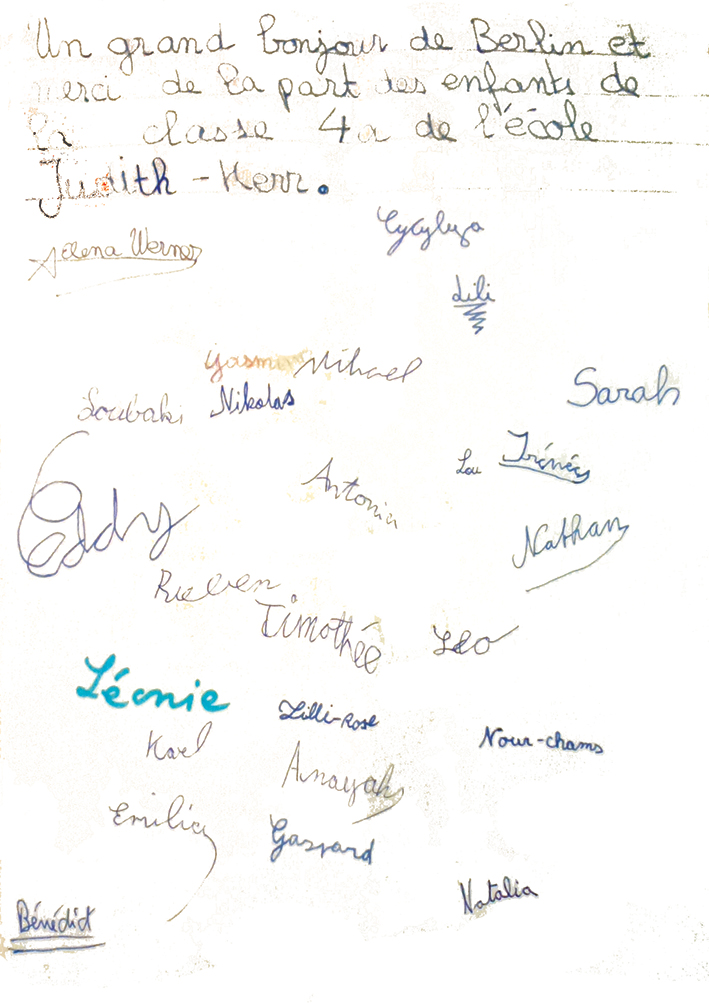 Un grand bonjour de Berlin et
merci de la part des enfants de
la classe 4a de l'école
Judith-Kerr.
Lili
Mihael
Nikolas
Sarah
Lou
Irénée
Antonia
Eddy
Nathan
Rueben
Timothée
Leo
Léonie
Lilli-Rose
Nour-chams
Karl
Amayah
Emilia
Gaspard
Natalia
Bénédict